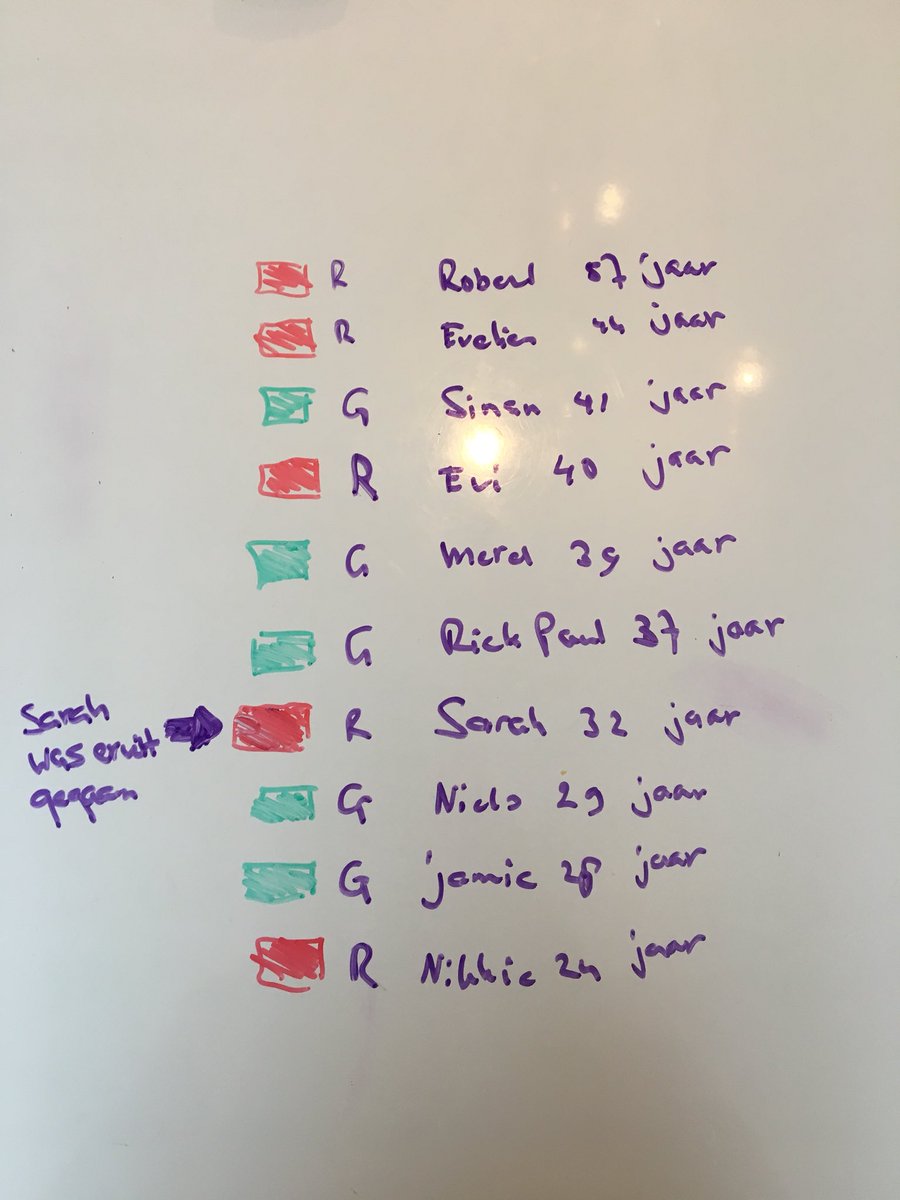 R Robert 57 jaar
R Evelien 44 jaar
G Sinan 41 jaar
R Evi 40 jaar
G Merel 39 jaar
G Rick Paul 37 jaar
Sarah
was eruit
gegaan
R Sarah 32 jaar
G Niels 29 jaar
G jamie 28 jaar
R Nikkie 24 jaar